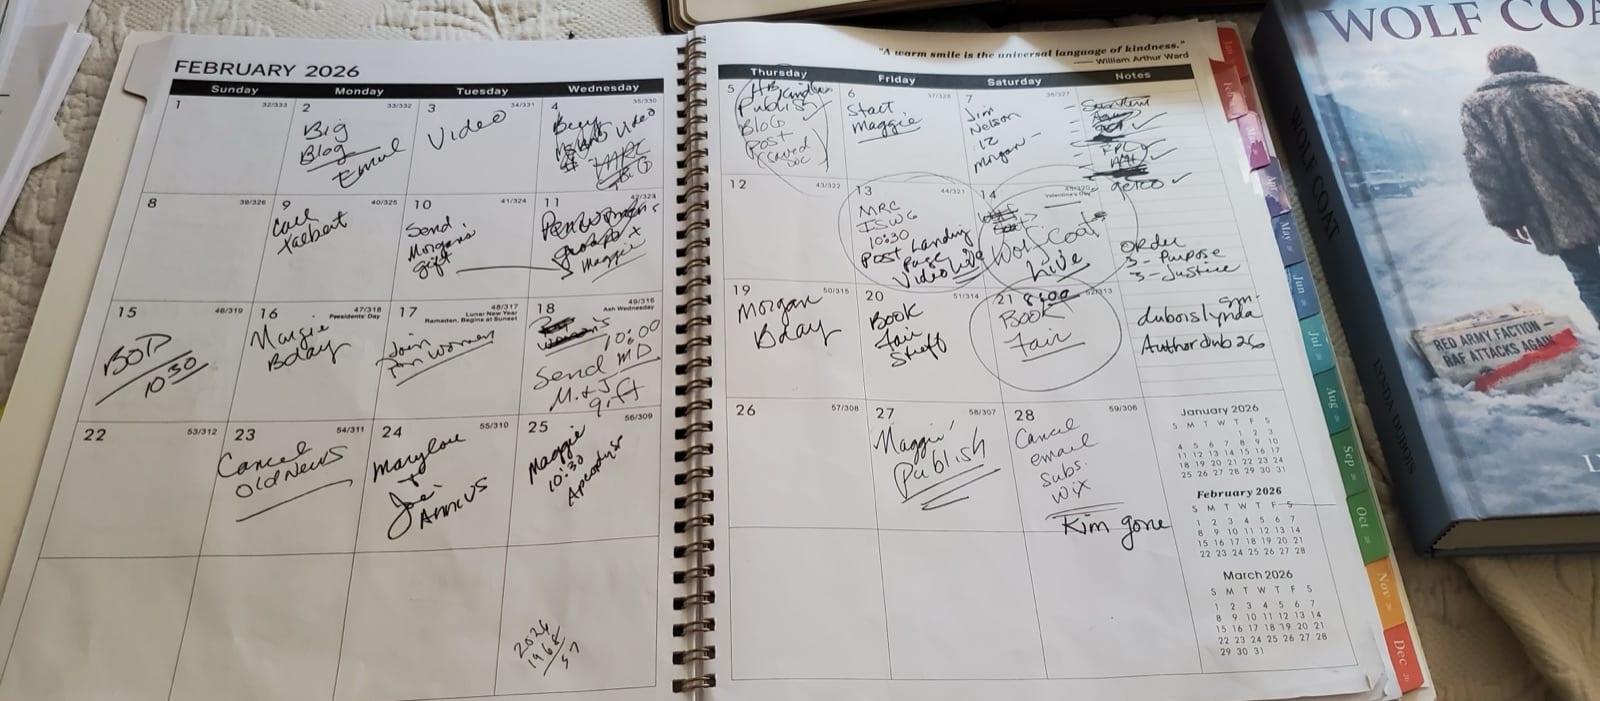 FEBRUARY 2026
Sunday
Monday
Tuesday
Wednesday
1
32/333
2
33/332
Big
Blog
Email
3
34/331
Video
4
35/330
Video
8
39/326
9
40/325
Call
Talbert
10
41/324
Send
Morgan's
gift
11
42/323
Maggie
15
46/319
BOD
10:30
16
47/318
Presidents' Day
Margie
Bday
17
48/317
Lunar New Year
Ramadan, Begins at Sunset
Join
Pen Women
18
49/316
Ash Wednesday
10:00
Send MD
M. + J
gift
22
53/312
23
54/311
Cancel
Old News
24
55/310
Marylou
+
Joe
Annivs
25
56/309
Maggie
10:30
2026
1968
57
"A warm smile is the universal language of kindness."
— William Arthur Ward
Thursday
Friday
Saturday
Notes
5
Publish
Blog
Post
(saved
doc)
6
37/328
Start
Maggie
7
38/327
Jim
Nelson
12
Morgan -
12
43/322
13
44/321
MRC
ISWG
10:30
Post Landing
Page
Video Live
14
45/320
Valentine's Day
Wolf Coat
Live
Order
3 - Purpose
3 - Justice
19
50/315
Morgan
Bday
20
51/314
Book
Fair
Stuff
21
52/313
8:00
Book
Fair
gm-
duboislynda
Authordub26
26
57/308
27
58/307
Maggie
Publish
28
59/306
Cancel
email
subs.
Wix
Kim gone
January 2026
S M T W T F S
1 2 3
4 5 6 7 8 9 10
11 12 13 14 15 16 17
18 19 20 21 22 23 24
25 26 27 28 29 30 31
February 2026
S M T W T F S
1 2 3 4 5 6 7
8 9 10 11 12 13 14
15 16 17 18 19 20 21
22 23 24 25 26 27 28
March 2026
S M T W T F S
1 2 3 4 5 6 7
8 9 10 11 12 13 14
15 16 17 18 19 20 21
22 23 24 25 26 27 28
29 30 31
Jan
Feb
May
Jun
Jul
Aug
Sep
Oct
Nov
Dec
WOLF COA
WOLF COAT
LYNDA DUBOIS
RED ARMY FACTION —
RAF ATTACKS AGAIN